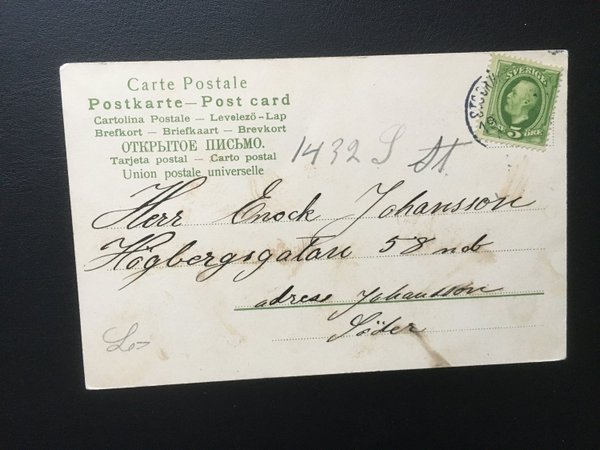 Carte Postale
Postkarte — Post card
Cartolina Postale — Levelező-Lap
Brefkort — Briefkaart — Brevkort
ОТКРЫТОЕ ПИСЬМО.
Tarjeta postal — Carto postal
Union postale universelle
SVERIGE
5 ÖRE
1432 S
Herr Enock Johansson
Högbergsgatan 58 nb
adress Johansson
Söder